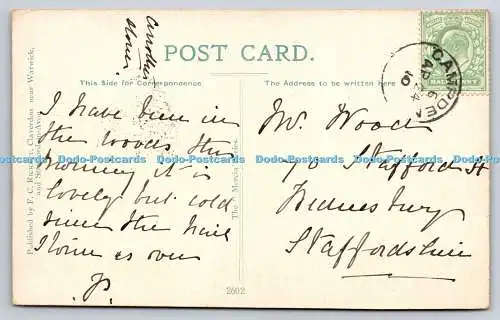 Another
stone.
POST CARD.
This Side for Correspondence
The Address to be written here
HALFPENNY
CAMPDEN
AP 26
10
I have been in
the woods this
morning it is
lovely but cold
since the hail
storm is over
Mr. Wood
70 Stafford St
Wednesbury
Staffordshire
Published by F. C. Claverdon near Warwick,
The Mercia Series.
2602
Dodo-Postcards Dodo-Postcards Dodo-Postcards Dodo-Postcards Dodo-Postcards Dodo-Postcards